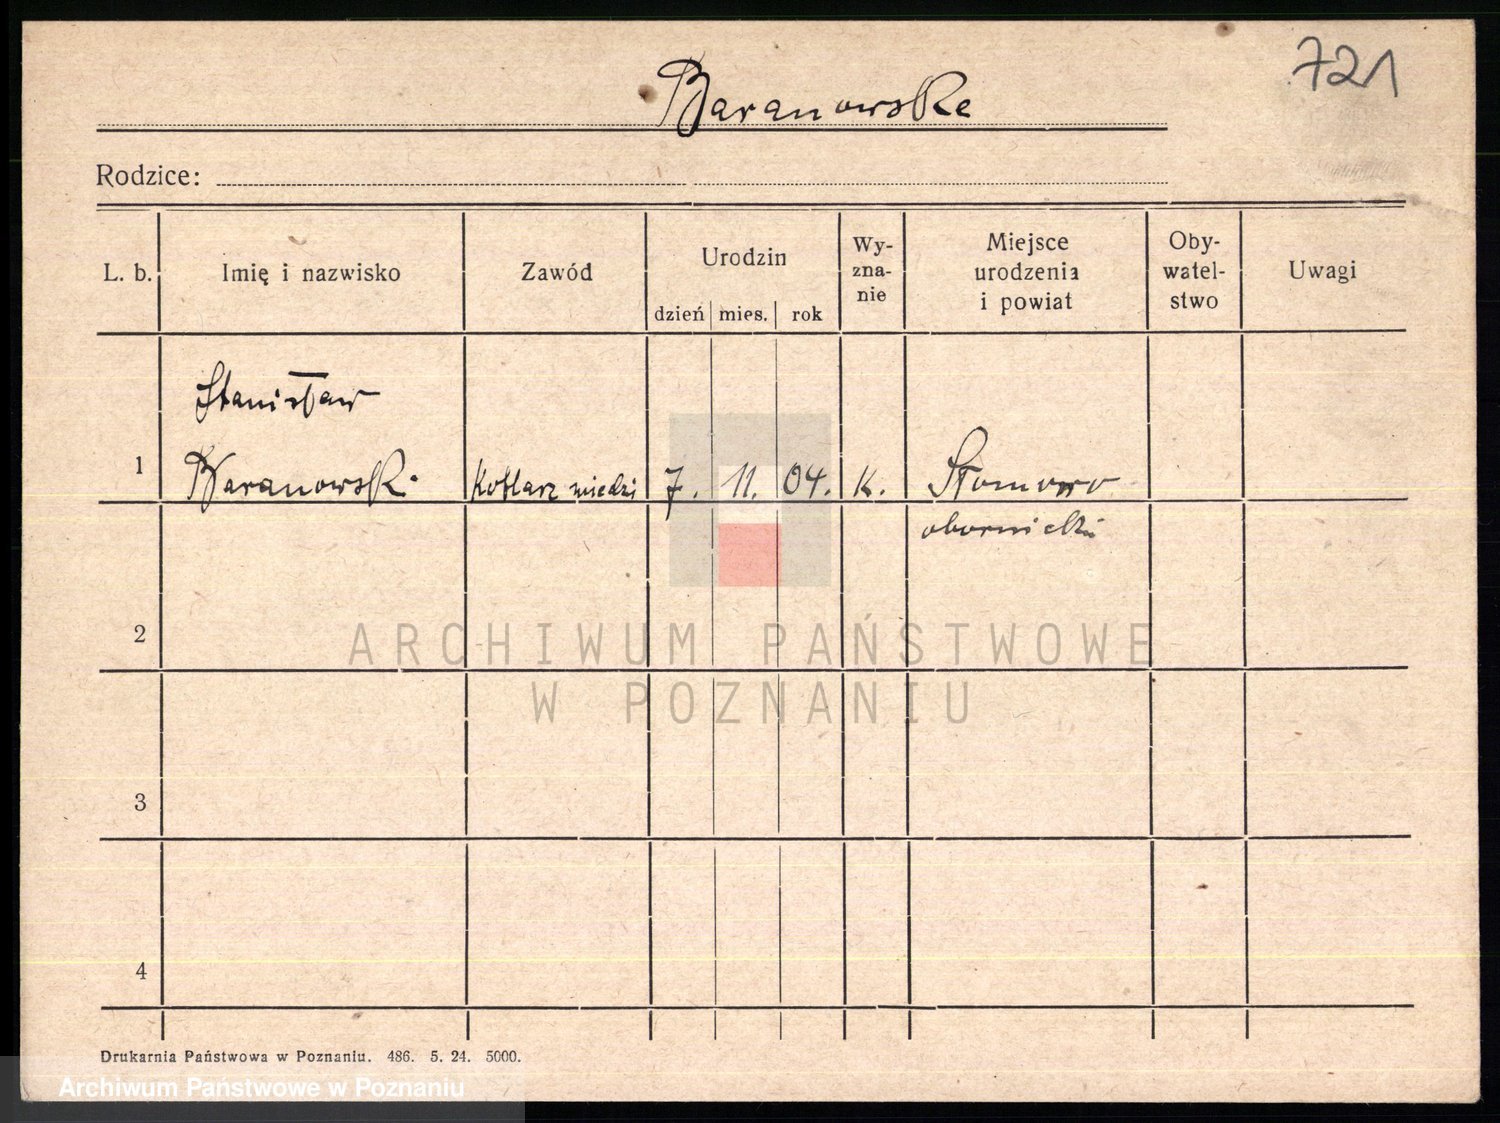 721
Baranowski
Rodzice:
L. b. Imię i nazwisko Zawód Urodzin dzień mies. rok Wy-zna-nie Miejsce urodzenia i powiat Oby-watel-stwo Uwagi
Stanisław
1 Baranowski Kotlarz miedzi 7. 11. 04. K. Słomowo
obornicki
2
ARCHIWUM PAŃSTWOWE
W POZNANIU
3
4
Drukarnia Państwowa w Poznaniu. 486. 5. 24. 5000.
Archiwum Państwowe w Poznaniu